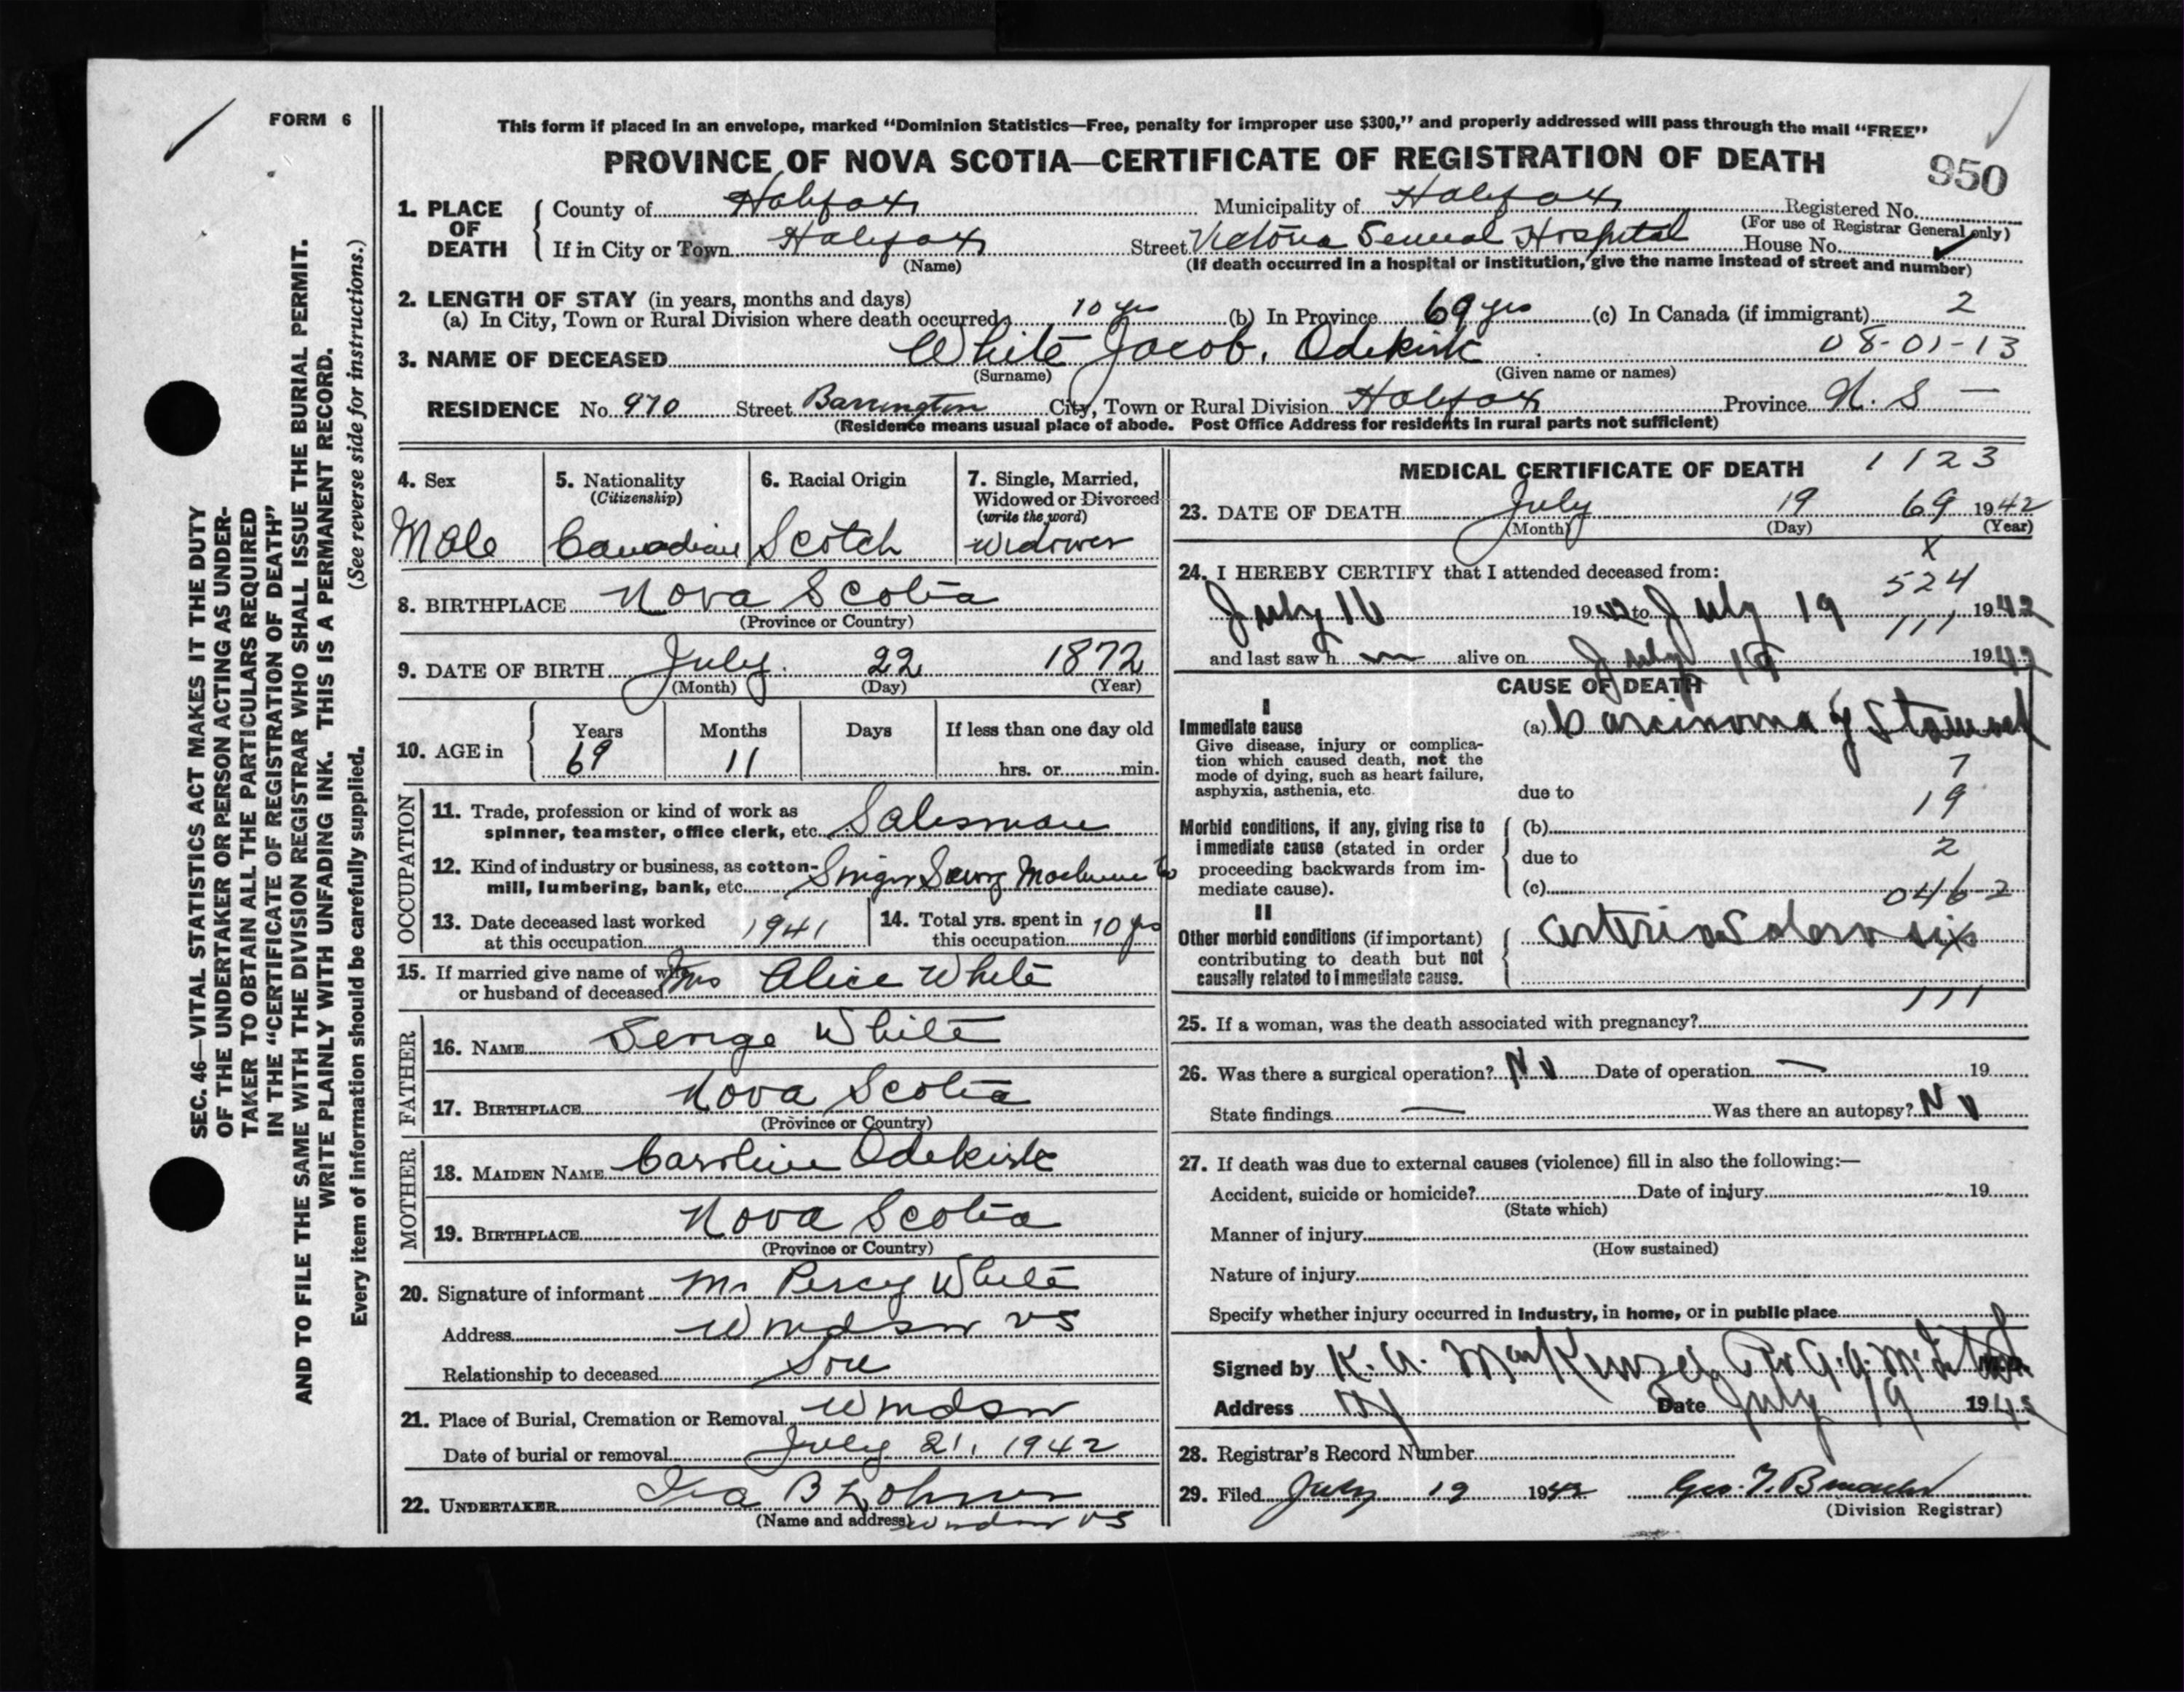 FORM 6
This form if placed in an envelope, marked "Dominion Statistics—Free, penalty for improper use $300," and properly addressed will pass through the mail "FREE"
PROVINCE OF NOVA SCOTIA—CERTIFICATE OF REGISTRATION OF DEATH
950
1. PLACE OF DEATH
County of Halifax Municipality of Halifax Registered No.
(For use of Registrar General only)
If in City or Town Halifax Street Victoria General Hospital House No.
(Name) (If death occurred in a hospital or institution, give the name instead of street and number)
2. LENGTH OF STAY (in years, months and days)
(a) In City, Town or Rural Division where death occurred 10 yrs (b) In Province 69 yrs (c) In Canada (if immigrant) 2
3. NAME OF DECEASED White Jacob. Odekirk 08-01-13
(Surname) (Given name or names)
RESIDENCE No. 970 Street Barrington City, Town or Rural Division Halifax Province N. S —
(Residence means usual place of abode. Post Office Address for residents in rural parts not sufficient)
4. Sex
Male
5. Nationality
(Citizenship)
Canadian
6. Racial Origin
Scotch
7. Single, Married,
Widowed or Divorced
(write the word)
Widower
8. BIRTHPLACE Nova Scotia
(Province or Country)
9. DATE OF BIRTH July 22 1872
(Month) (Day) (Year)
10. AGE in
Years Months Days If less than one day old
69 11 hrs. or min.
OCCUPATION
11. Trade, profession or kind of work as
spinner, teamster, office clerk, etc. Salesman
12. Kind of industry or business, as cotton-
mill, lumbering, bank, etc. Singer Sewing Machine Co
13. Date deceased last worked
at this occupation 1941
14. Total yrs. spent in
this occupation 10 yrs
15. If married give name of wife
or husband of deceased Mrs Alice White
FATHER
16. NAME George White
17. BIRTHPLACE Nova Scotia
(Province or Country)
MOTHER
18. MAIDEN NAME Caroline Odekirk
19. BIRTHPLACE Nova Scotia
(Province or Country)
20. Signature of informant Mr Percy White
Address Windsor NS
Relationship to deceased Son
21. Place of Burial, Cremation or Removal Windsor
Date of burial or removal July 21, 1942
22. UNDERTAKER Ira B
(Name and address) Windsor NS
MEDICAL CERTIFICATE OF DEATH 1123
23. DATE OF DEATH July 19 69 1942
(Month) (Day) (Year)
x
24. I HEREBY CERTIFY that I attended deceased from:
524
July 16 1942 to July 19 1942
111
and last saw h m alive on July 19 1942
CAUSE OF DEATH
I
Immediate cause
Give disease, injury or complica-
tion which caused death, not the
mode of dying, such as heart failure,
asphyxia, asthenia, etc.
(a) Carcinoma of Stomach
7
due to
19
Morbid conditions, if any, giving rise to
immediate cause (stated in order
proceeding backwards from im-
mediate cause).
(b)
due to
2
(c)
0462
II
Other morbid conditions (if important)
contributing to death but not
causally related to immediate cause.
arteriosclerosis
111
25. If a woman, was the death associated with pregnancy?
26. Was there a surgical operation? No Date of operation — 19
State findings — Was there an autopsy? No
27. If death was due to external causes (violence) fill in also the following:—
Accident, suicide or homicide? Date of injury 19
(State which)
Manner of injury
(How sustained)
Nature of injury
Specify whether injury occurred in industry, in home, or in public place
Signed by K. A. MacKenzie M.D.
Address Date July 19 1942
28. Registrar's Record Number
29. Filed July 19 1942 Geo. F.
(Division Registrar)
SEC. 46—VITAL STATISTICS ACT MAKES IT THE DUTY
OF THE UNDERTAKER OR PERSON ACTING AS UNDER-
TAKER TO OBTAIN ALL THE PARTICULARS REQUIRED
IN THE "CERTIFICATE OF REGISTRATION OF DEATH"
AND TO FILE THE SAME WITH THE DIVISION REGISTRAR WHO SHALL ISSUE THE BURIAL PERMIT.
WRITE PLAINLY WITH UNFADING INK. THIS IS A PERMANENT RECORD.
Every item of information should be carefully supplied. (See reverse side for instructions.)